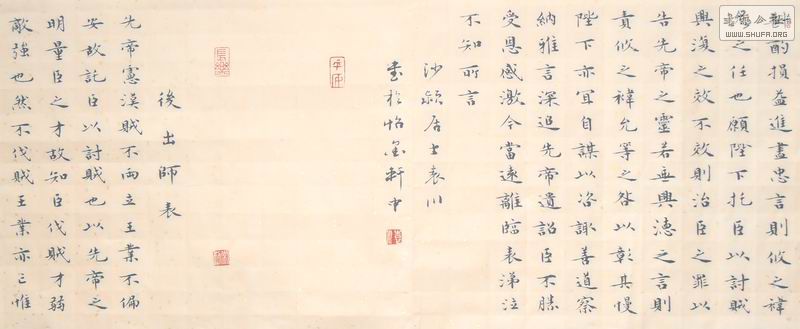 WWW.SHUFA.ORG
斟酌損益進盡忠言則攸之褘
之任也願陛下託臣以討賊
興復之效不效則治臣之罪以
告先帝之靈若無興德之言則
責攸之褘允等之咎以彰其慢
陛下亦宜自謀以咨諏善道察
納雅言深追先帝遺詔臣不勝
受恩感激今當遠離臨表涕泣
不知所言
沙颍居士袁川
書於怡墨軒中
長樂
後出師表
先帝慮漢賊不兩立王業不偏
安故託臣以討賊也以先帝之
明量臣之才故知臣伐賊才弱
敵強也然不伐賊王業亦亡惟